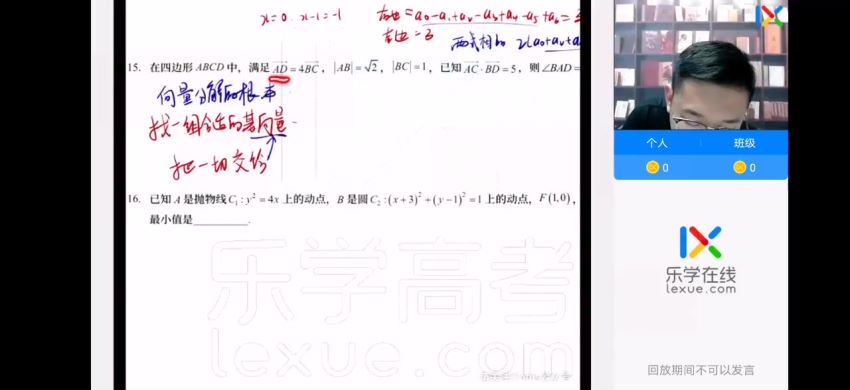 x=0. x-1=-1
右边=a₀-a₁+a₂-a₃+a₄-a₅+a₆=
左边=
两式相加 2(a₀+a₂+a
15. 在四边形 ABCD 中，满足 AD=4BC，|AB|=√2，|BC|=1，已知 AC·BD=5，则∠BAD=
向量分解的根本
找一组合适的基向量
把一切交给
16. 已知 A 是抛物线 C₁: y²=4x 上的动点，B 是圆 C₂:(x+3)²+(y-1)²=1 上的动点，F(1,0)，
最小值是________.
乐学高考
lexue.com
个人 班级
0 0
乐学在线
lexue.com
回放期间不可以发言